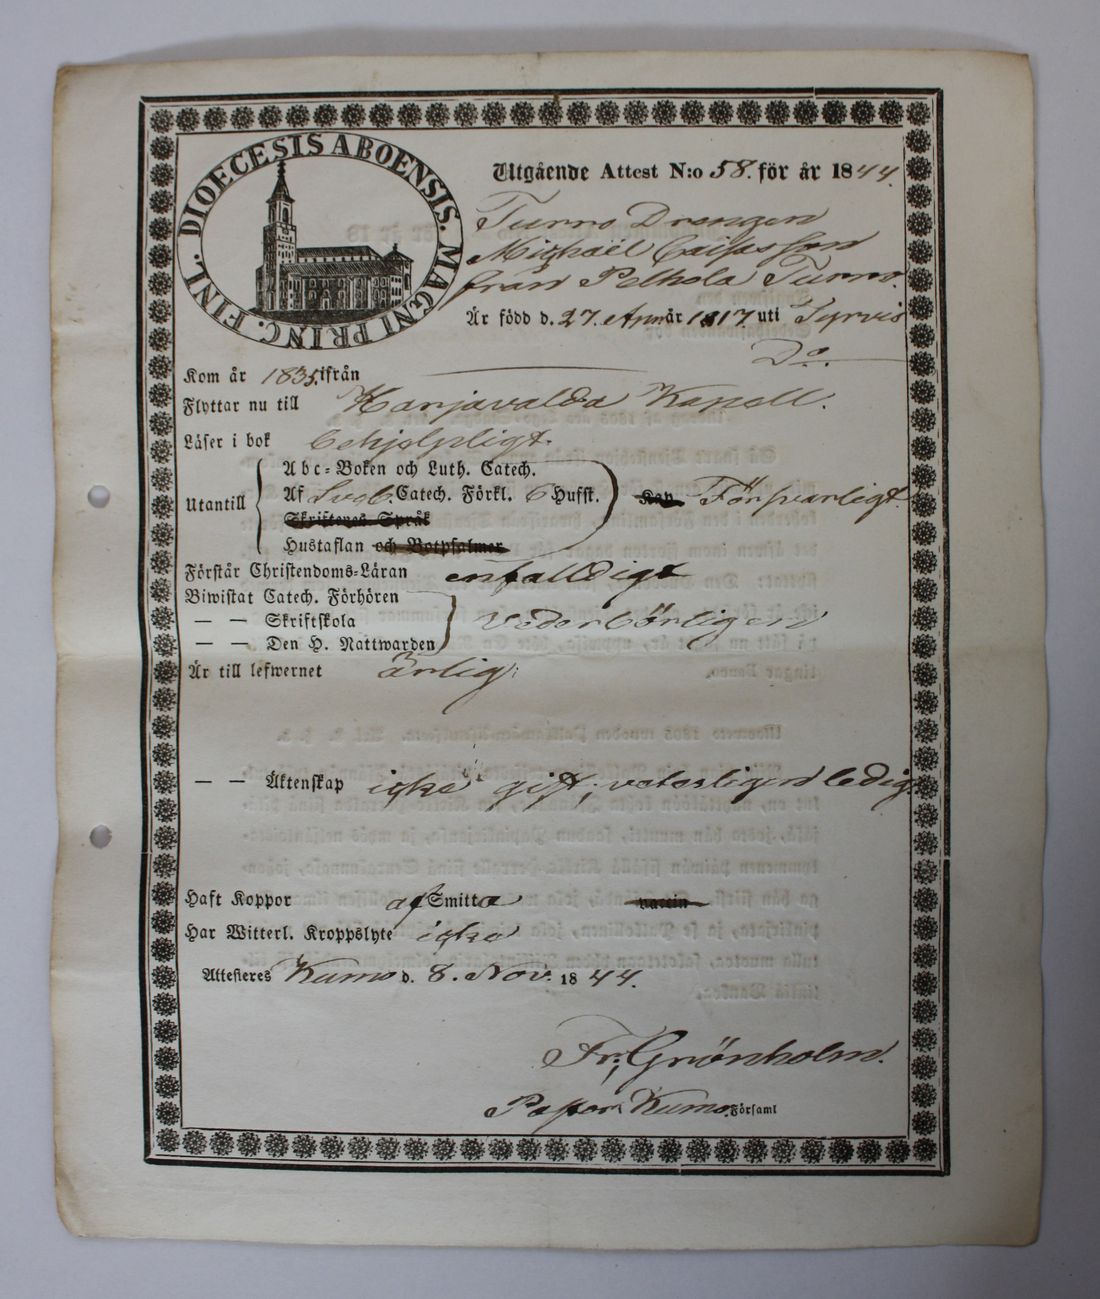 DIOECESIS ABOENSIS. MAGNI PRINC. FINL.
Utgående Attest N:o 58. för år 1844.
Drengen
Michaël
från Pelhola
Är född d. 27. år 1817 uti
Do.
Kom år 1835. ifrån
Flyttar nu till Harjavalda Kapell.
Läser i bok behjelpligt.
Utantill
Abc-Boken och Luth. Catech.
Af Sveb. Catech. Förkl. 6 Hufst.
Skriftenes Språk
Hustaflan och Botpsalmer
Kan Försvarligt.
Förstår Christendoms-Läran enfalldigt
Biwistat Catech. Förhören
— — Skriftskola
— — Den H. Nattwarden
Vederbörligen
Är till lefwernet ärlig;
— — Äktenskap icke gift, veterligen ledig.
Haft Koppor af Smitta vaccin
Har Witterl. Kroppslyte icke
Attesteres Kumo d. 8. Nov. 1844.
Fr. Grönholm.
Pastor i Kumo Församl